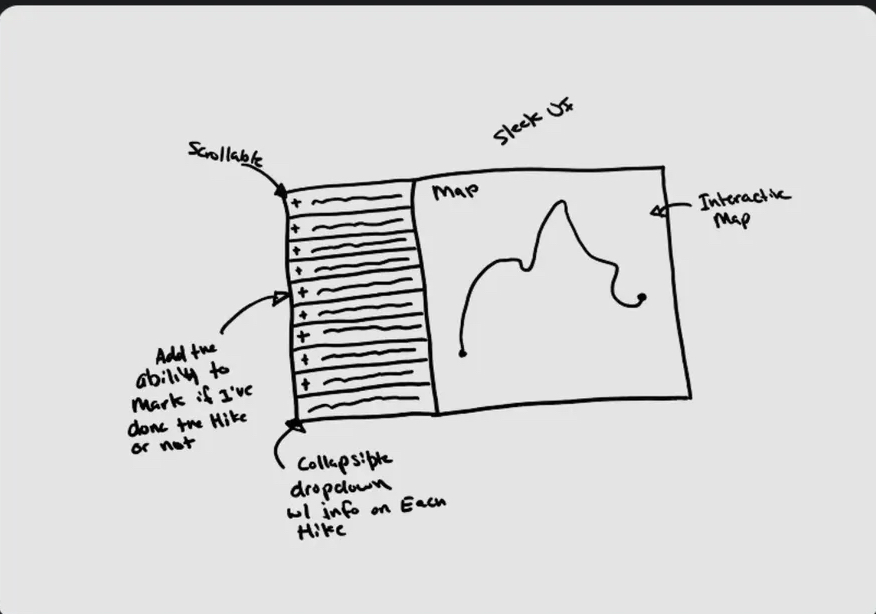 Sleek UI
Scrollable
Map
Interactive
Map
Add the
ability to
Mark if I've
done the Hike
or not
Collapsible
dropdown
w/ info on Each
Hike